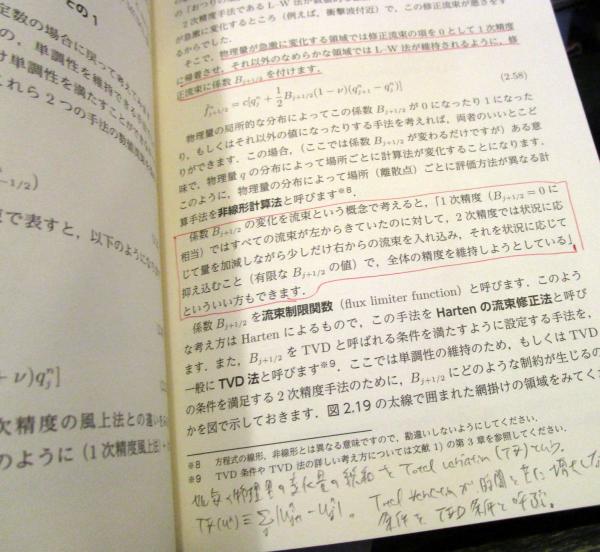 との 1
定数の場合に戻って考えてみま
の，単調性を維持できる
け単調性を満たすことができ
これら 2 つの手法の数値流束を
−1/2)
束で表すと，以下のようにな
+ ν)qⱼⁿ]
次精度の風上法との違いを
のように (1 次精度風上法) +
2 次精度手法である L-W 法が
に急激に変化するところ（例えば，衝撃波付近）で，この修正流束が悪さをす
るからでした．
そこで，物理量が急激に変化する領域では修正流束の項を 0 として 1 次精度
に帰着させ，それ以外のなめらかな領域では L-W 法が維持されるように，修
正流束に係数 B_{j+1/2} を付けます．
f̃ⁿ_{j+1/2} = c[qⱼⁿ + 1/2 B_{j+1/2}(1 − ν)(qⁿ_{j+1} − qⱼⁿ)] (2.58)
物理量の局所的な分布によってこの係数 B_{j+1/2} が 0 になったり 1 になった
り，もしくはそれ以外の値になったりする手法を考えれば，両者のいいとこど
りができます．この場合，（ここでは係数 B_{j+1/2} が変わるだけですが）ある意
味で，物理量 q の分布によって場所ごとに計算法が変化することになります．
このように，物理量の分布によって場所（離散点）ごとに評価方法が異なる計
算手法を非線形計算法と呼びます※8．
係数 B_{j+1/2} の変化を流束という概念で考えると，「1 次精度（B_{j+1/2} = 0 に
相当）ではすべての流束が左からきていたのに対して，2 次精度では状況に応
じて量を加減しながら少しだけ右からの流束を入れ込み，それを状況に応じて
抑え込むこと（有限な B_{j+1/2} の値）で，全体の精度を維持しようとしている」
といういい方もできます．
係数 B_{j+1/2} を流束制限関数（flux limiter function）と呼びます．このよう
な考え方は Harten によるもので，この手法を Harten の流束修正法と呼び
ます．また，B_{j+1/2} を TVD と呼ばれる条件を満たすように設定する手法を，
一般に TVD 法と呼びます※9．ここでは単調性の維持のため，もしくは TVD
の条件を満足する 2 次精度手法のために，B_{j+1/2} にどのような制約が生じるの
かを図で示しておきます．図 2.19 の太線で囲まれた網掛けの領域をみてくだ
※8 方程式の線形，非線形とは異なる意味ですので，勘違いしないようにしてください．
※9 TVD 条件や TVD 法の詳しい考え方については文献 1) の第 3 章を参照してください．
物理量の変化量の総和を Total variation (TV) という．
TV(uⁿ) ≡ Σⱼ |uⁿⱼ₊₁ − uⁿⱼ|。 Total variation が時間と共に増大しない
条件を TVD 条件と呼ぶ。